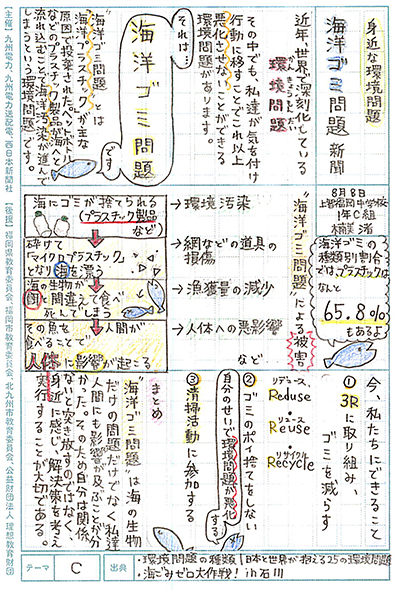 身近な環境問題
海洋ゴミ問題新聞
8月8日
上智福岡中学校
1年C組
楠美 渚
近年、世界で深刻化している
環境問題
かんきょうもんだい
その中でも、私達が気を付け
行動に移すことでこれ以上
悪化させないことができる
環境問題があります。
それは…
海洋ゴミ問題
です
"海洋ゴミ問題"とは
海洋プラスチックが主な
原因で投棄されたペットボトル
などのプラスチック製品が海へと
流れ込むことで海洋汚染が進んで
しまうという環境問題です。
海洋ゴミの
種類別割合
では、プラスチックは
なんと
65.8%
もあるよ
"海洋ゴミ問題"による被害
→環境汚染
→網などの道具の
損傷
→漁獲量の減少
→人体への悪影響
など
海にゴミが捨てられる
(プラスチック製品
など)
砕けて
「マイクロプラスチック」
となり海を漂う
海の生物が
餌と間違えて食べ
死んでしまう
その魚を人間が
食べることで
人体に影響が起こる
今、私たちにできること
①3Rに取り組み、
ゴミを減らす
リデュース
Reduse
リユース
Reuse
リサイクル
Recycle
②ゴミのポイ捨てをしない
自分のせいで環境問題が悪化
する
③清掃活動に参加する
まとめ
"海洋ゴミ問題"は海の生物
だけの問題だけでなく私達
人間にも影響が及ぶことが分
かった。そのため自分は関係
ないと突き放すのではなく、
身近に感じ、解決策を考え
実行することが大切である。
テーマ
C
出典
・環境問題の種類!日本と世界が抱える25の環境問題
・海ごみゼロ大作戦! in石川
【主催】九州電力、九州電力送配電、西日本新聞社
【後援】福岡県教育委員会、福岡市教育委員会、北九州市教育委員会、公益財団法人 理想教育財団